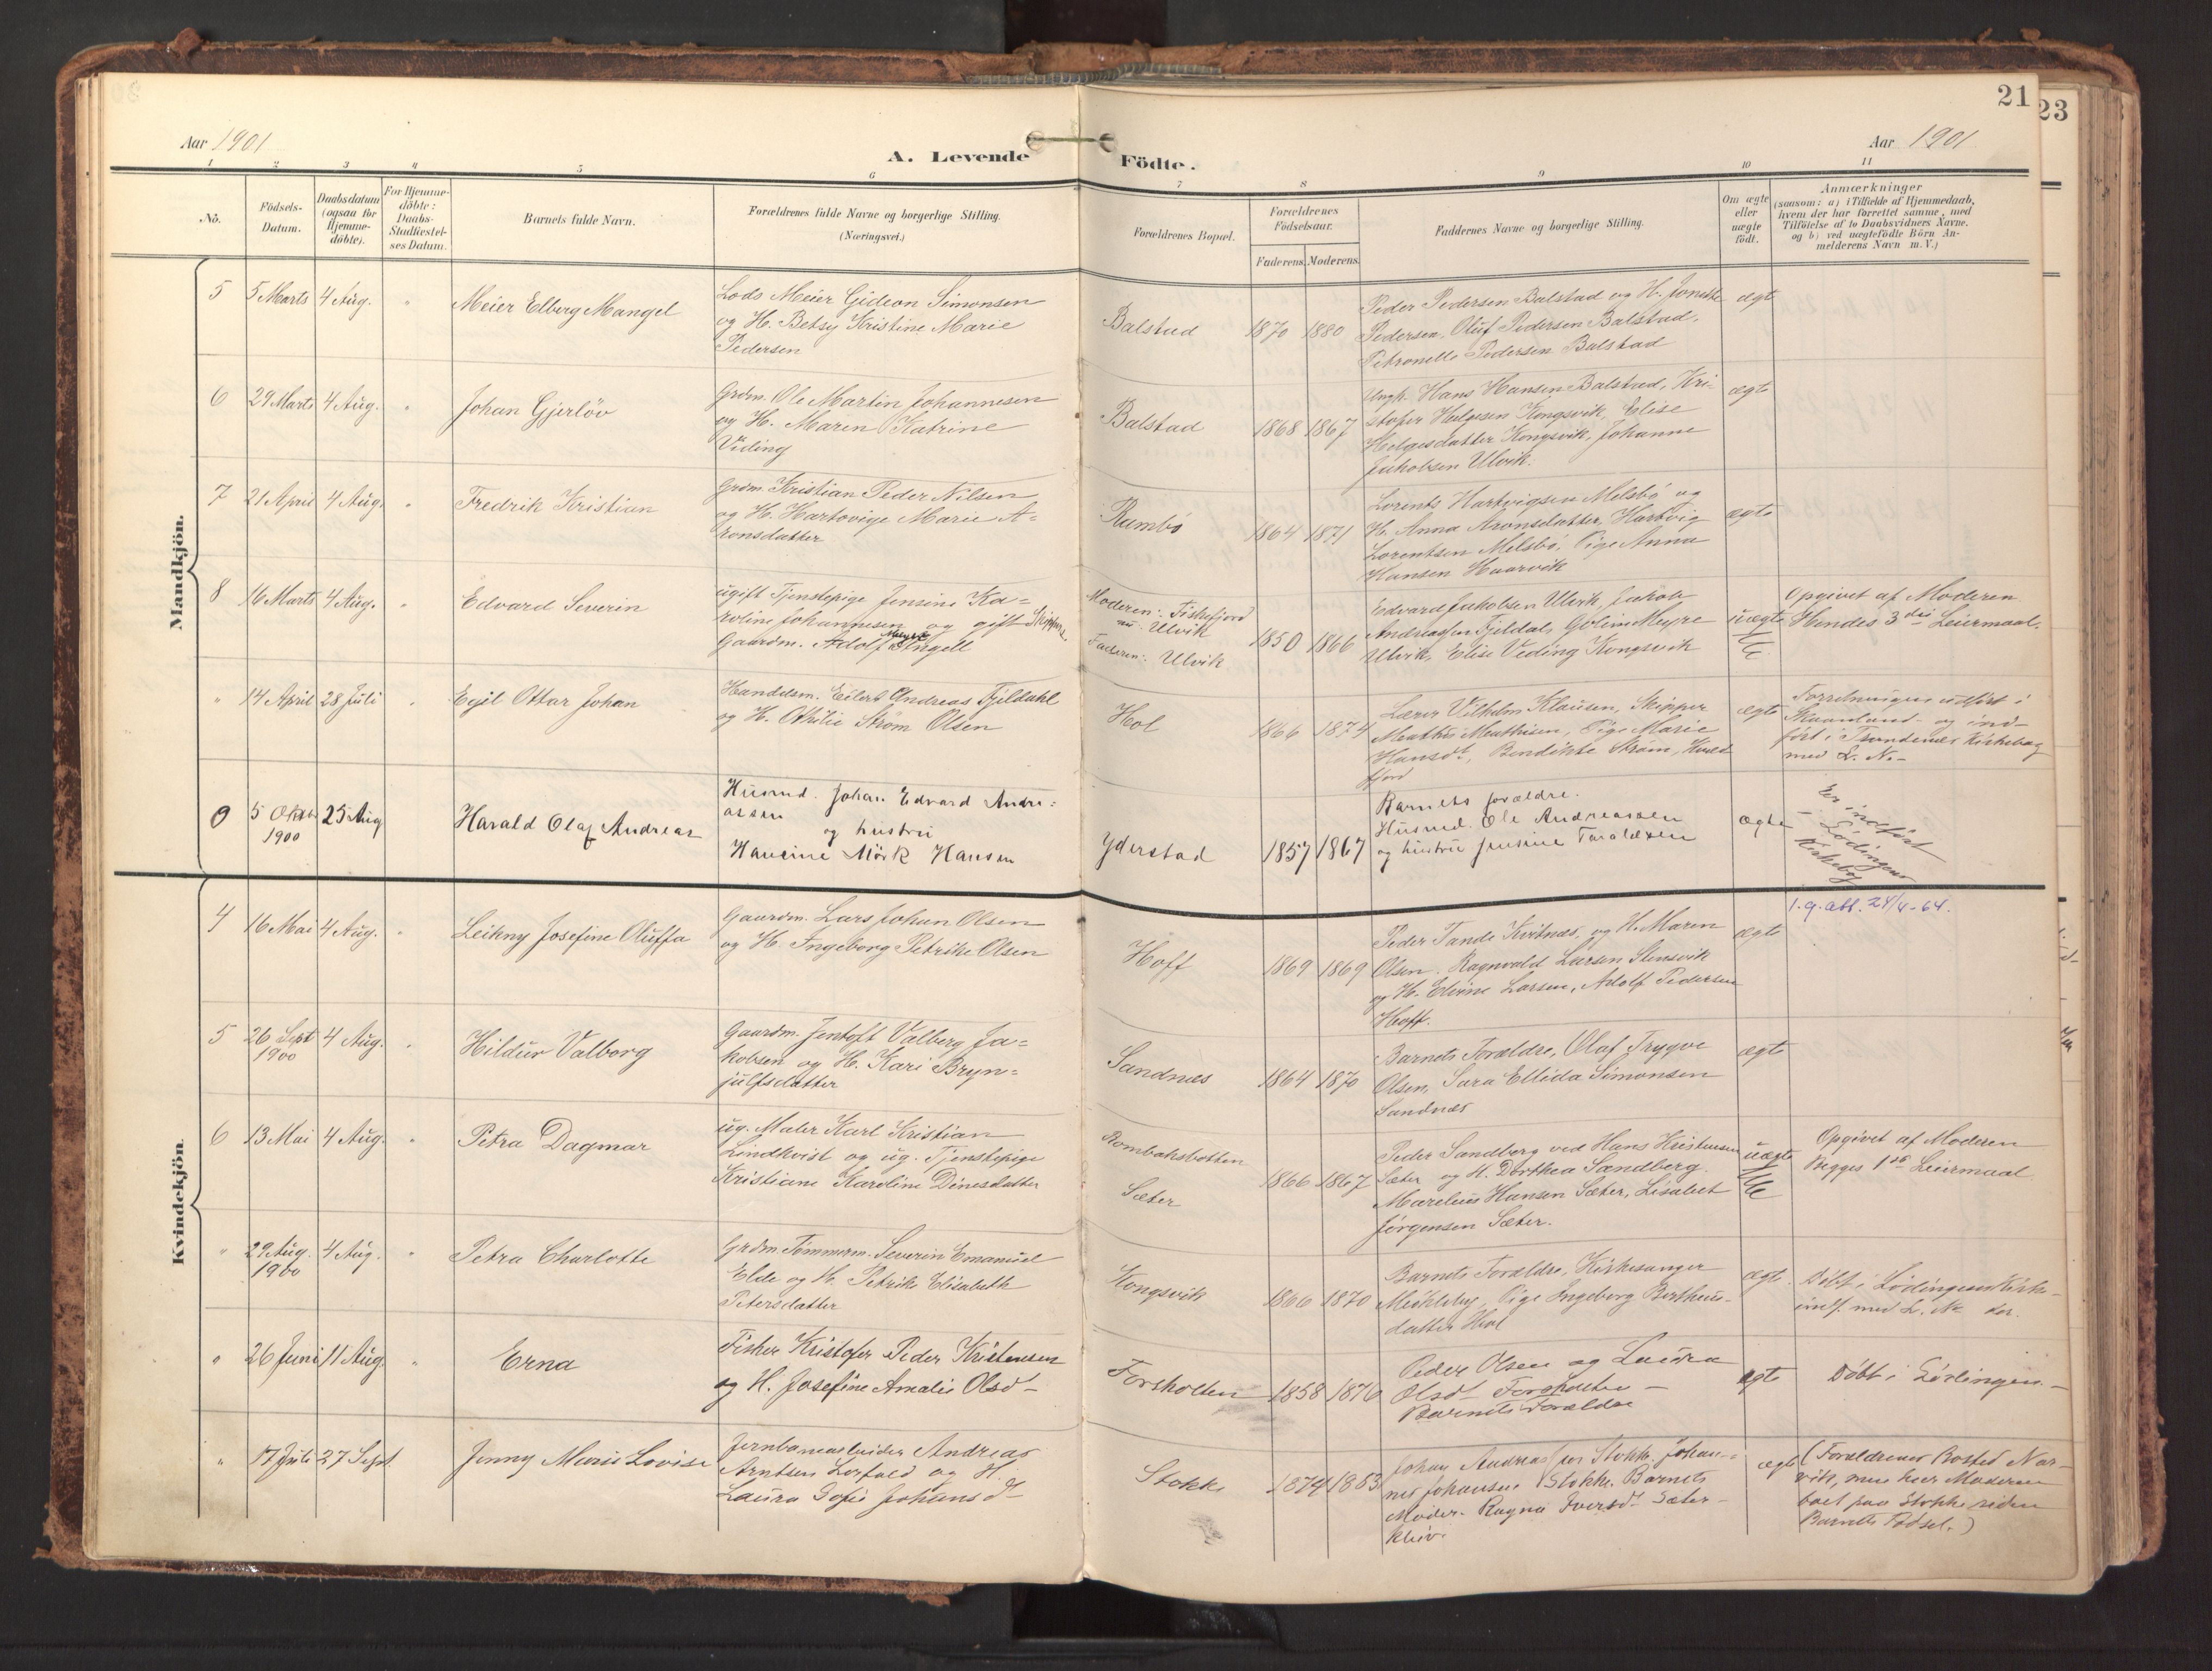 21
23
Aar 1901
A. Levende
Födte.
Aar 1901
1 2 3 4 5 6 7 8 9 10 11
No.
Födsels-
Datum.
Daabsdatum
(ogsaa for
Hjemme-
döbte).
For Hjemme-
döbte:
Daabs-
Stadfæstel-
ses Datum.
Barnets fulde Navn.
Forældrenes fulde Navne og borgerlige Stilling.
(Næringsvei.)
Forældrenes Bopæl.
Forældrenes
Födselsaar.
Faderens. Moderens.
Faddernes Navne og borgerlige Stilling.
Om ægte
eller
uægte
födt.
Anmærkninger
(saasom: a) i Tilfælde af Hjemmedaab,
hvem der har forrettet samme, med
Tilföielse af to Daabsvidners Navne.
og b) ved uægtefödte Börn An-
melderens Navn m. V.)
Mandkjön.
5 5 Marts 4 Aug. " Meier Elberg Mangel
Lods Meier Gideon Simonsen
og H. Betsy Kristine Marie
Pedersen
Balstad 1870 1880
Peder Pedersen Balstad og H.
Pedersen, Oluf Pedersen Balstad,
Petronelle Pedersen Balstad
ægte
6 29 Marts 4 Aug. " Johan Gjerløv
Grdm. Ole Martin Johannesen
og H. Maren Katrine
Viding
Balstad 1868 1867
Ungk. Hans Hansen Balstad, Kri-
stofer Helgesen Kongsvik, Elise
Helgesdatter Kongsvik, Johanne
Jakobsen Ulvik.
ægte
7 21 April 4 Aug. " Fredrik Kristian
Grdm. Kristian Peder Nilsen
og H. Hartvige Marie A-
ronsdatter
Rumbö 1864 1871
Lorents Hartvigsen Melsbö og
H. Anna Aronsdatter, Hartvig
Lorentsen Melsbö, Pige Anna
Hansen Haarvik
ægte
8 16 Marts 4 Aug. " Edvard Severin
ugift Tjenstepige Jensine Ka-
roline Johannesen og gift Skipper,
Gaardm. Adolf Meyer Angell
Moderen: Fiskefjord
Ulvik
Faderen: Ulvik
1850 1866
Edvard Jakobsen Ulvik, Jakob
Andreassen Fjeldal, Meyre
Ulvik, Elise Veding Kongsvik
uægte
Opgivet af Moderen
Hendes 3die Leiermaal.
" 14 April 28 Juli " Egil Ottar Johan
Handelsm. Eilert Andreas Fjeldahl
og H. Ottilie Strøm Olsen
Hol 1866 1874
Lærer Vilhelm Klausen, Skipper
Mathis Mathisen, Pige Marie
Hansdt, Bendikte Strøm, Kvæd
fjord
ægte
Forretningen udført i
Skaanland- og ind-
ført i Trondenes Kirkebog
med L. N.-
9 5 Oktbr 1900 25 Aug Harald Olaf Andreas
Husmd. Johan Edvard Andre-
assen
og hustru
Hansine Mörk Hansen
Yderstad 1857 1867
Barnets forældre.
Husmd. Ole Andreassen
og hustru Jensine Taraldsen
ægte
Er indført
i Lødingens
Kirkebog
Kvindekjön.
4 16 Mai 4 Aug. " Leikny Josefine Oluffa
Gaardm. Lars Johan Olsen
og H. Ingeborg Petrike Olsen
Hoff 1869 1869
Peder Tande Kvitnæs, og H. Maren
Olsen. Ragnvald Larsen Stensvik
og H. Elvine Larsen, Adolf Pedersen
Hoff.
ægte
1.g. att. 28/4-64.
5 26 Sept 1900 4 Aug. " Hildur Valborg
Gaardm. Jentoft Valberg Ja-
kobsen og H. Kari Bryn-
julfsdatter
Sandnæs 1864 1870
Barnets Forældre, Olaf Trygve
Olsen, Sara Ellida Simonsen
Sandnæs
ægte
6 13 Mai 4 Aug. " Petra Dagmar
ug. Maler Karl Kristian
Lindkvist og ug. Tjenstepige
Kristiane Karoline Dinesdatter
Rombaksbotten
Sæter
1866 1867
Peder Sandberg ved Hans Kristensen
Sæter og H. Dorthea Sandberg.
Marelius Hansen Sæter, Lisabet
Jørgensen Sæter.
uægte
Opgivet af Moderen
Begges 1ste Leiermaal
" 29 Aug. 1900 4 Aug. " Petra Charlotte
Grdm. Tømmerm. Severin Emanuel
Elde og H. Petrike Elisabeth
Petersdatter
Kongsvik 1866 1870
Barnets Forældre, Kirkesanger
Pige Ingeborg Bertheus-
datter Hol
ægte.
Døbt i Lødingens Kirke-
indf. med L. Nr der.
" 26 Juni 11 Aug. " Erna
Fisker Kristofer Peder Kristensen
og H. Josefine Amalie Olsd-
Forsholten 1858 1876
Peder Olsen og Laura
Olsdt Forsholten -
Barnets Forældre
ægte
Döbt i Lödingen.-
" 17 Juli 27 Sept Jenny Marie Lovise
Jernbanearbeider Andreas
Arntsen Lerfald og H.
Laura Sofie Johansd-
Stokke 1874 1863
Johan Andreas Stokke, Johan-
nes Johansen Stokke, Barnets
Moder. Ragna Iversdt. Sæter-
kleiv.
ægte
(Forældrenes Bosted Nar-
vik, men har Moderen
boet paa Stokke siden
Barnets Fødsel.)